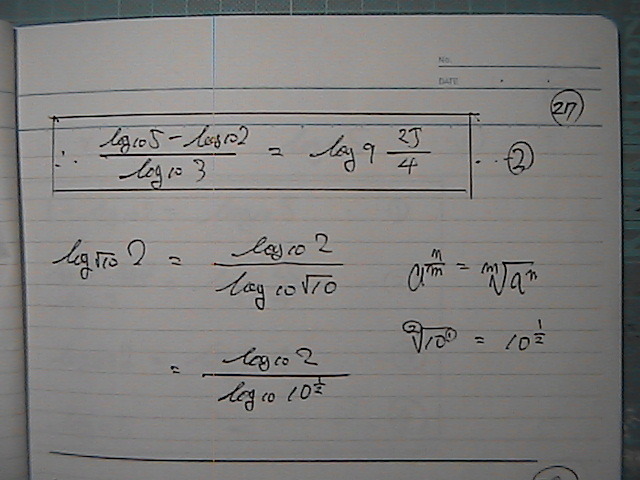 No.
DATE
27
∴ (log₁₀5 − log₁₀2)/(log₁₀3) = log₉ 25/4 ... ②
log_√10 2 = (log₁₀2)/(log₁₀√10)
a^(n/m) = ᵐ√(aⁿ)
②√(10①) = 10^(1/2)
= (log₁₀2)/(log₁₀10^(1/2))